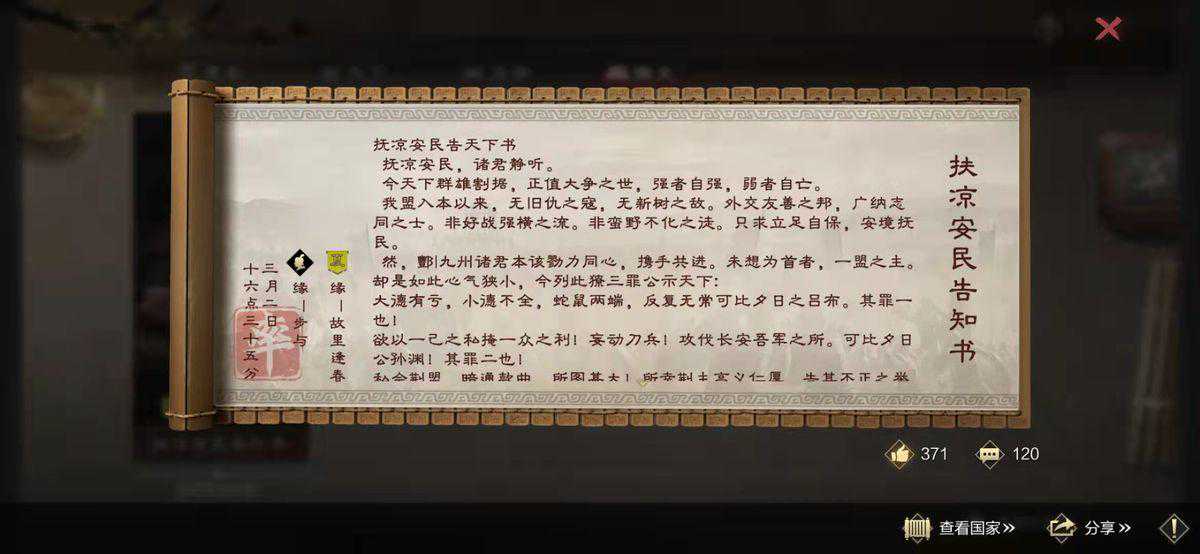 扶凉安民告知书
抚凉安民告天下书
抚凉安民，诸君静听。
今天下群雄割据，正值大争之世，强者自强，弱者自亡。
我盟入本以来，无旧仇之寇，无新树之敌。外交友善之邦，广纳志
同之士。非好战强横之流。非蛮野不化之徒。只求立足自保，安境抚
民。
然，酆|九州诸君本该勠力同心，携手共进。未想为首者，一盟之主。
却是如此心气狭小，今列此獠三罪公示天下：
大德有亏，小德不全，蛇鼠两端，反复无常可比夕日之吕布。其罪一
也！
欲以一己之私掩一众之利！妄动刀兵！攻伐长安吾军之所。可比夕日
公孙渊！其罪二也！
私会荆盟，暗通款曲，所图甚大！所幸荆主高义仁厚，告其不正之举
缘|故里逢春
缘|步与
三月二日
十六点三十五分
率
371
120
查看国家»
分享»